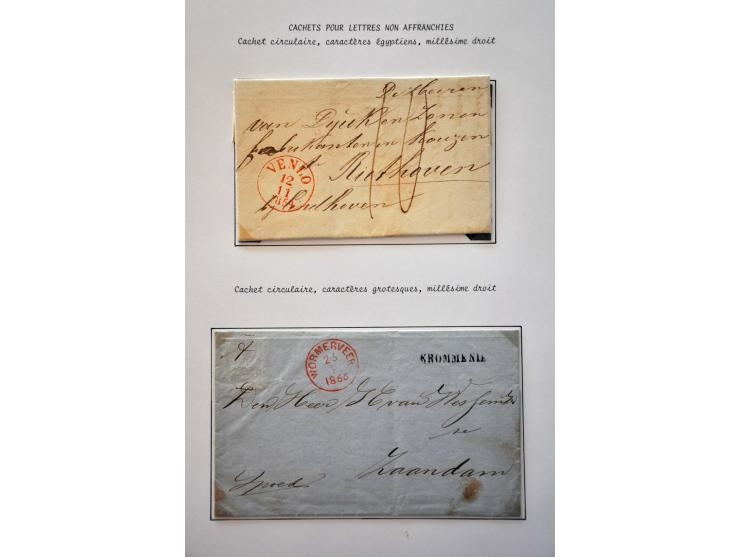 CACHETS POUR LETTRES NON AFFRANCHIES
Cachet circulaire, caractères égyptiens, millésime droit
De Heeren
van Dijck en Zonen
fabrikanten in
te
Riethoven
bij Eindhoven
10
VENLO
12
11
Cachet circulaire, caractères grotesques, millésime droit
WORMERVEER
1866
KROMMENIE
Den Heer H van
te
Zaandam
Spoed